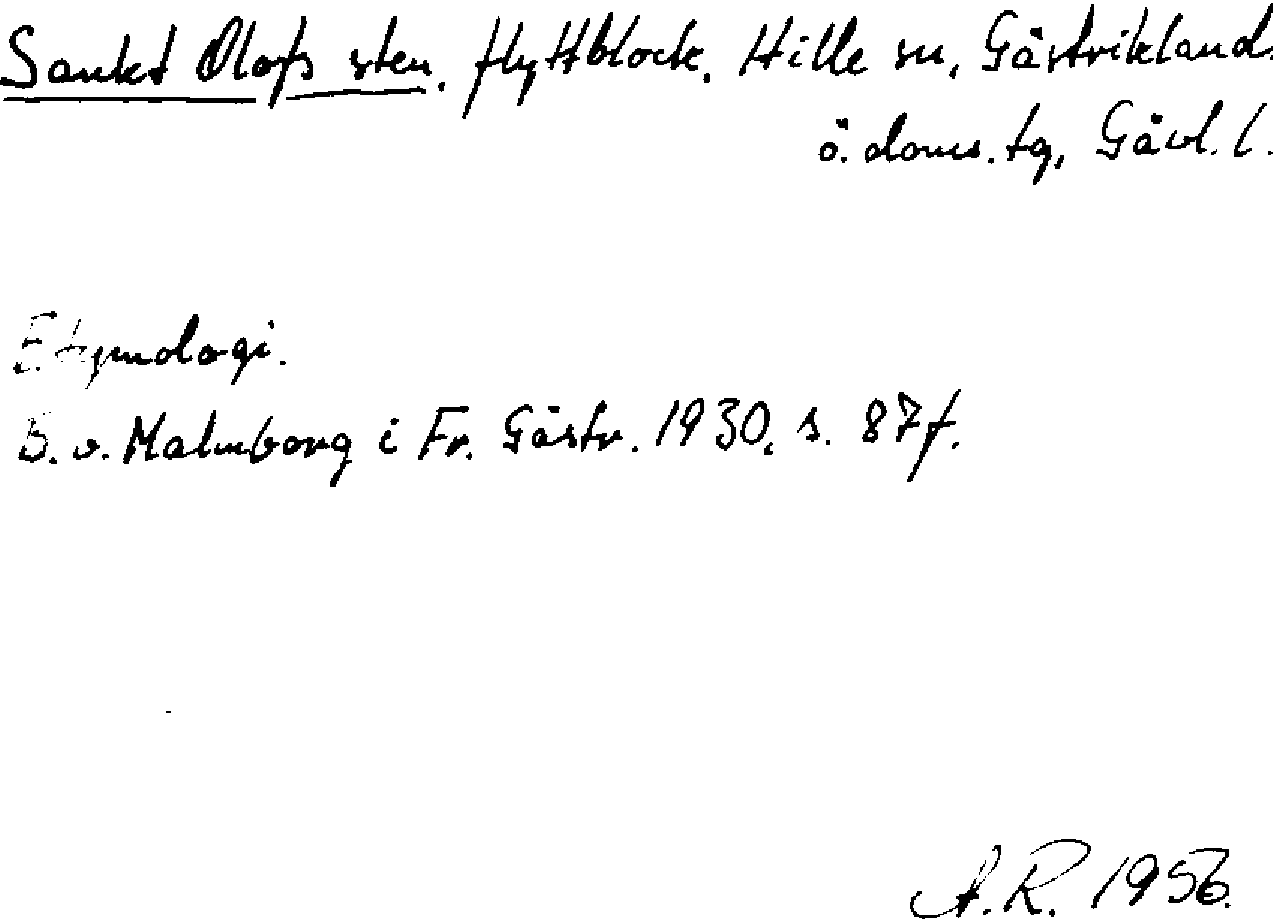 Sankt Olofs sten. flyttblock. Hille sn, Gästrikland.
ö. doms. tg, Gävl. l.
Etymologi.
B. v. Malmborg i Fr. Gästr. 1930. s. 87f.
A.R. 1956.